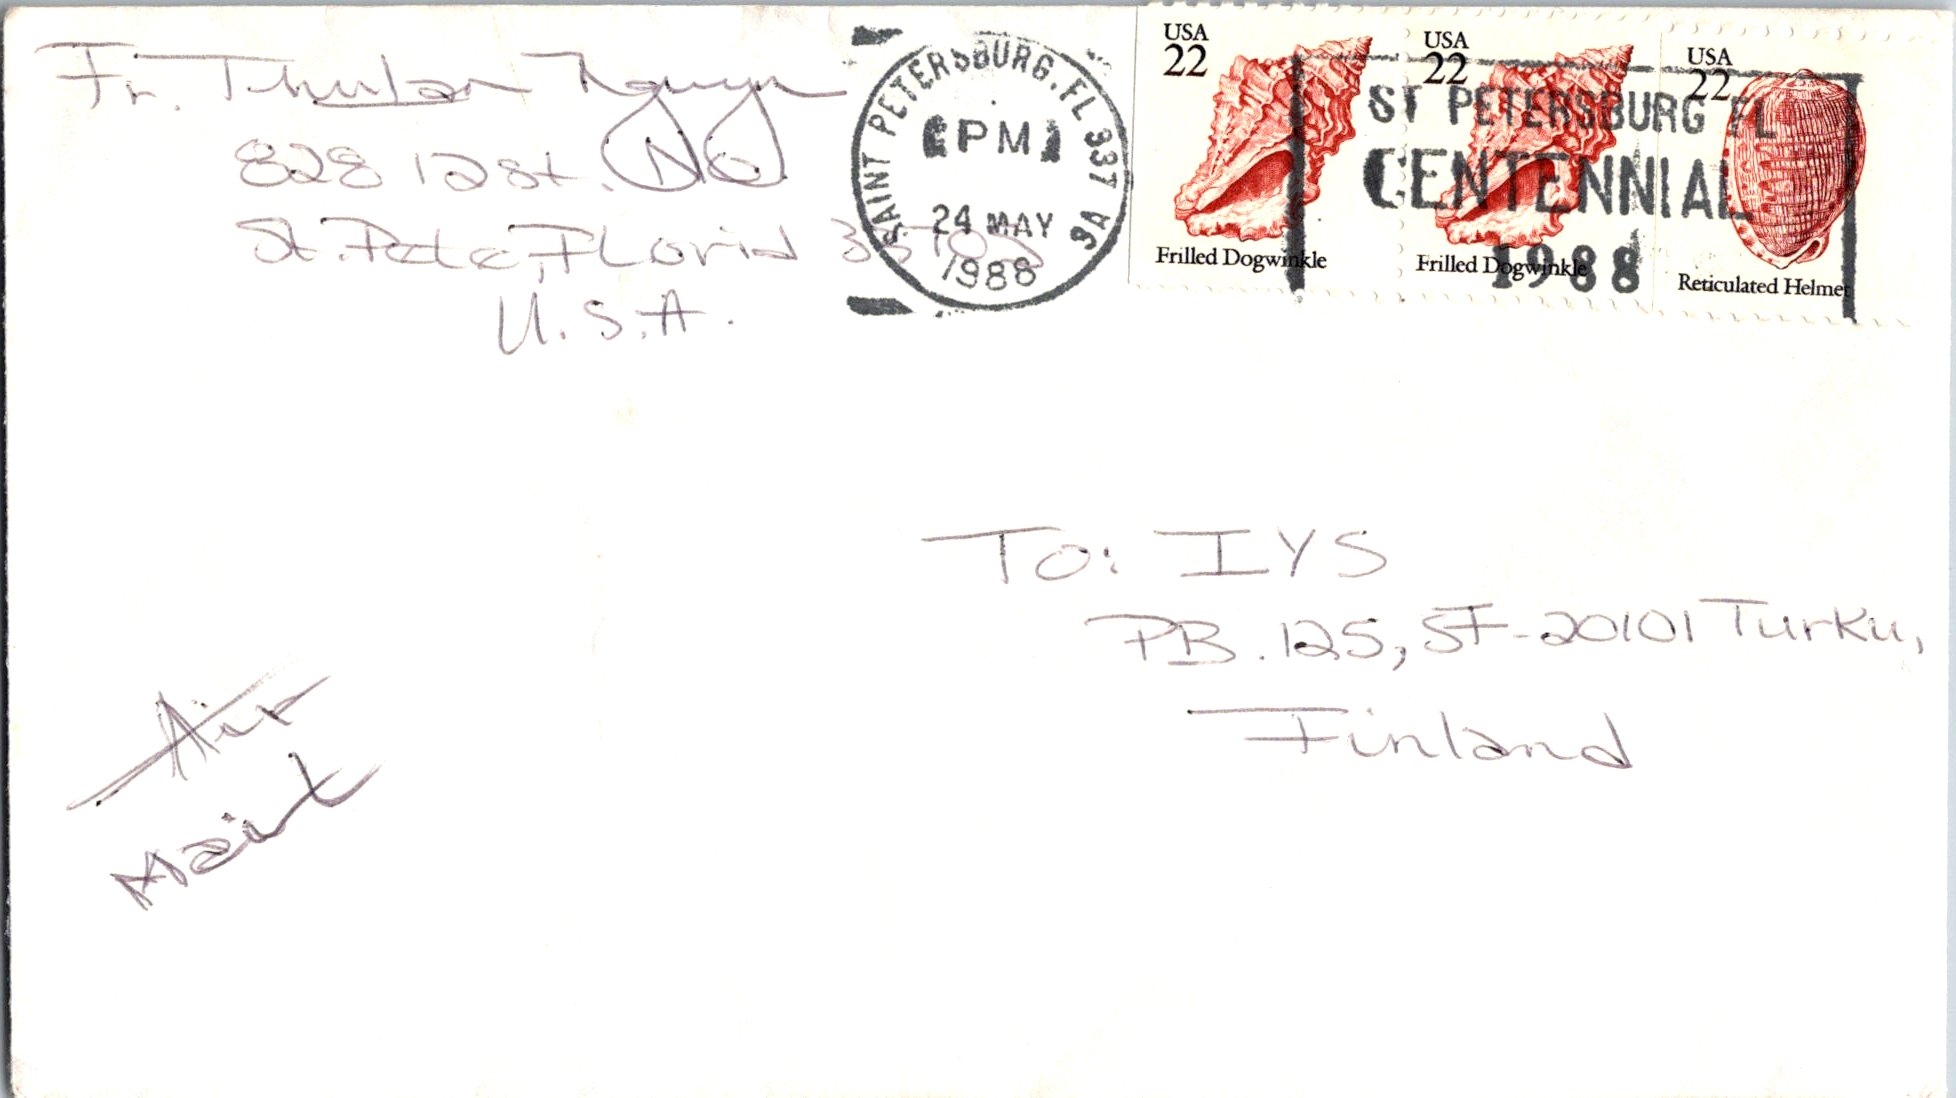 Fr. Thulan Nguyn
828 12 st. No
St. Pete, Florid 33705
U.S.A.
SAINT PETERSBURG, FL 337 #6
PM
24 MAY
1988
USA
22
Frilled Dogwinkle
USA
22
Frilled Dogwinkle
USA
22
Reticulated Helmet
ST PETERSBURG FL
CENTENNIAL
1988
To: IYS
PB. 125, SF-20101 Turku,
Finland
Air
Mail